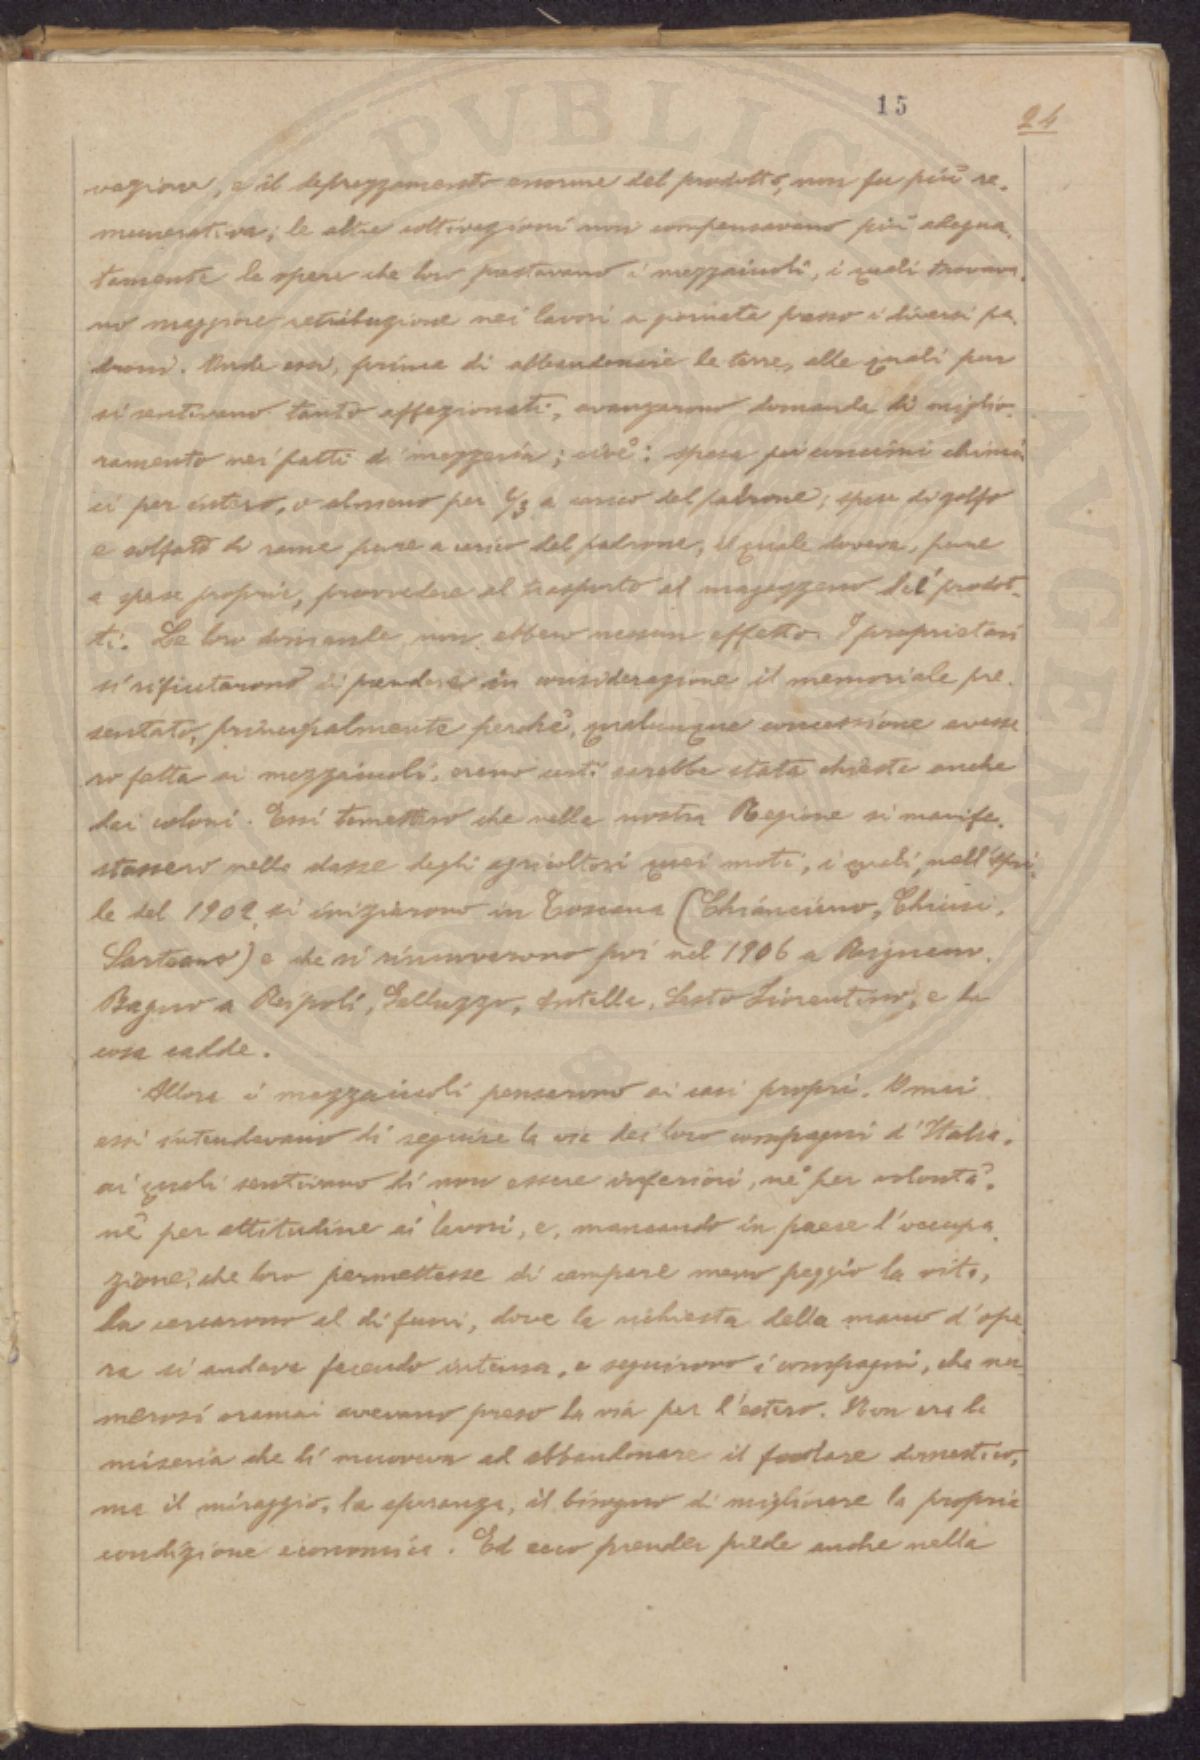 15
24
vazione, e il deprezzamento enorme del prodotto, non fu più re-
munerativa; le altre coltivazioni non compensavano più adegua-
tamente le opere che loro prestavano i mezzaiuoli, i quali trovava-
no maggiore retribuzione nei lavori a giornata presso i diversi pa-
droni. Onde essi, prima di abbandonare le terre, alle quali pur
si sentivano tanto affezionati, avanzarono domanda di miglio-
ramento nei patti di mezzeria; cioè: spesa pei concimi chimi-
ci per intero, o almeno per 2/3 a carico del padrone; spesa di zolfo
e solfato di rame pure a carico del padrone, il quale doveva, pure
a spese proprie, provvedere al trasporto al magazzeno dei prodot-
ti. Le loro domande non ebbero nessun effetto. I proprietari
si rifiutarono di prendere in considerazione il memoriale pre-
sentato, principalmente perchè, qualunque concessione avesse-
ro fatta ai mezzaiuoli, erano certi sarebbe stata chiesta anche
dai coloni. Essi temettero che nella nostra Regione si manife-
stassero nella classe degli agricoltori quei moti, i quali, nell'apri-
le del 1902 si iniziarono in Toscana (Chianciano, Chiusi,
Sarteano) e che si rinnovarono poi nel 1906 a Rignano,
Bagno a Ripoli, Galluzzo, Antella, Sesto Fiorentino, e la
cosa cadde.
Allora i mezzaiuoli pensarono ai casi propri. Omai
essi intendevano di seguire la via dei loro compagni d'Italia,
ai quali sentivano di non essere inferiori, nè per volontà,
nè per attitudine ai lavori, e, mancando in paese l'occupa-
zione, che loro permettesse di campare meno peggio la vita,
la cercarono al di fuori, dove la richiesta della mano d'ope-
ra si andava facendo intensa, e seguirono i compagni, che nu-
merosi oramai avevano preso la via per l'estero. Non era la
miseria che li muoveva ad abbandonare il focolare domestico,
ma il miraggio, la speranza, il bisogno di migliorare la propria
condizione economica. Ed ecco prender piede anche nella